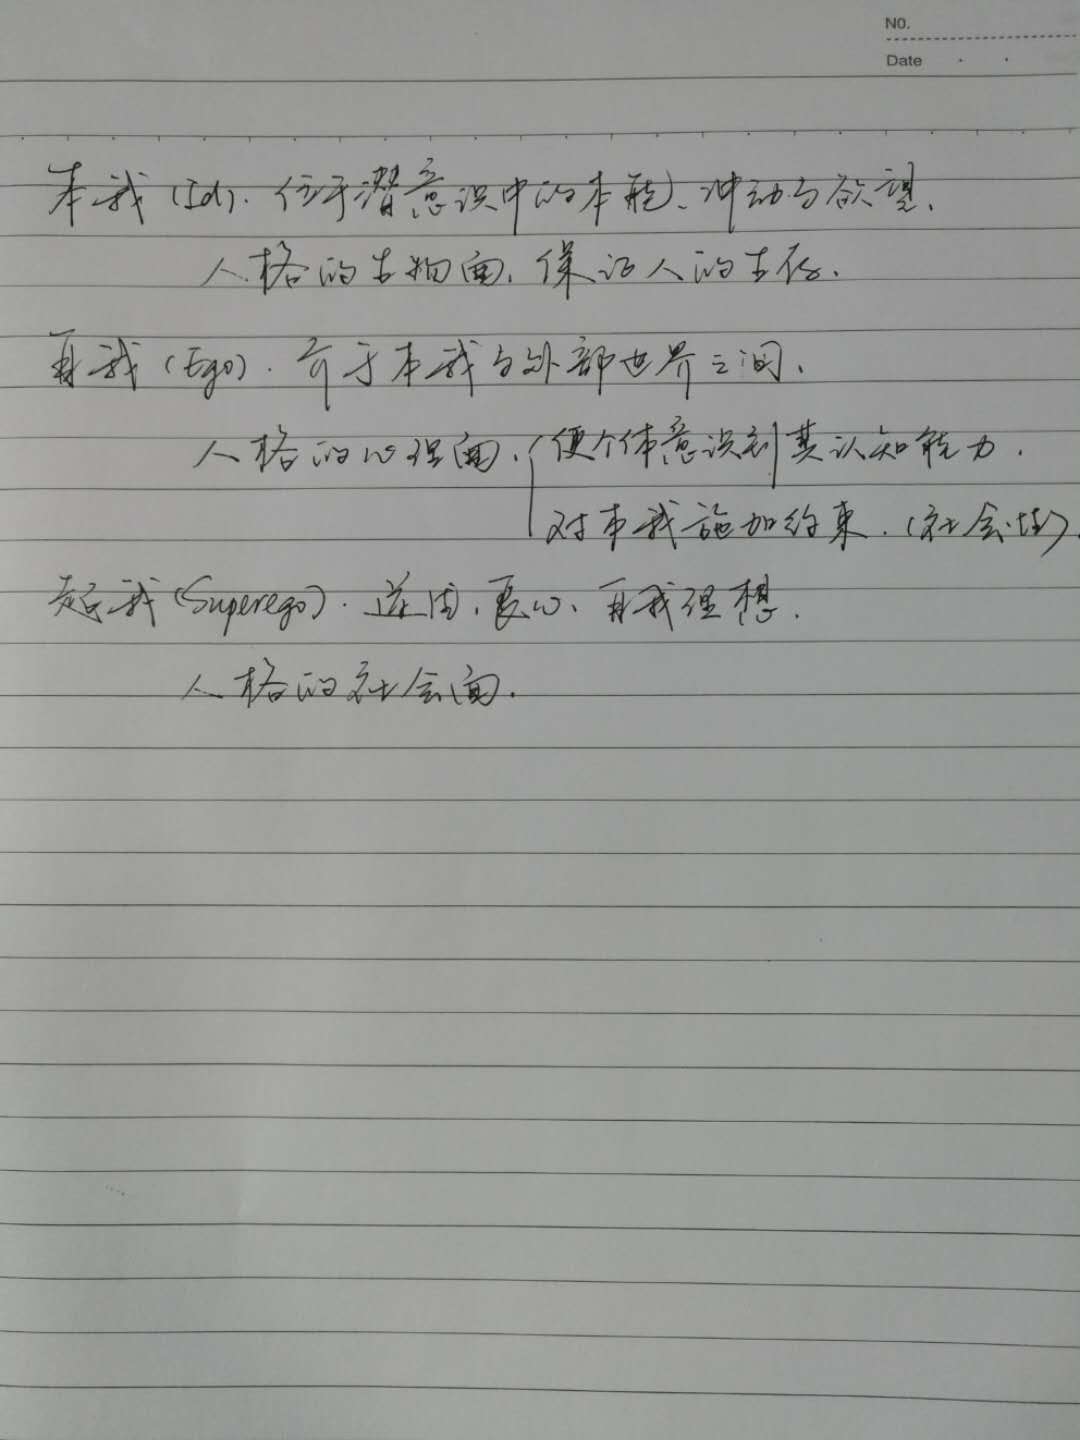 NO.
Date
本我(Id). 位于潜意识中的本能、冲动与欲望、
人格的生物面, 保证人的生存.
自我(Ego). 介于本我与外部世界之间、
人格的心理面, 使个体意识到其认知能力.
对本我施加约束. (社会性)
超我(Superego). 道德、良心、自我理想.
人格的社会面.